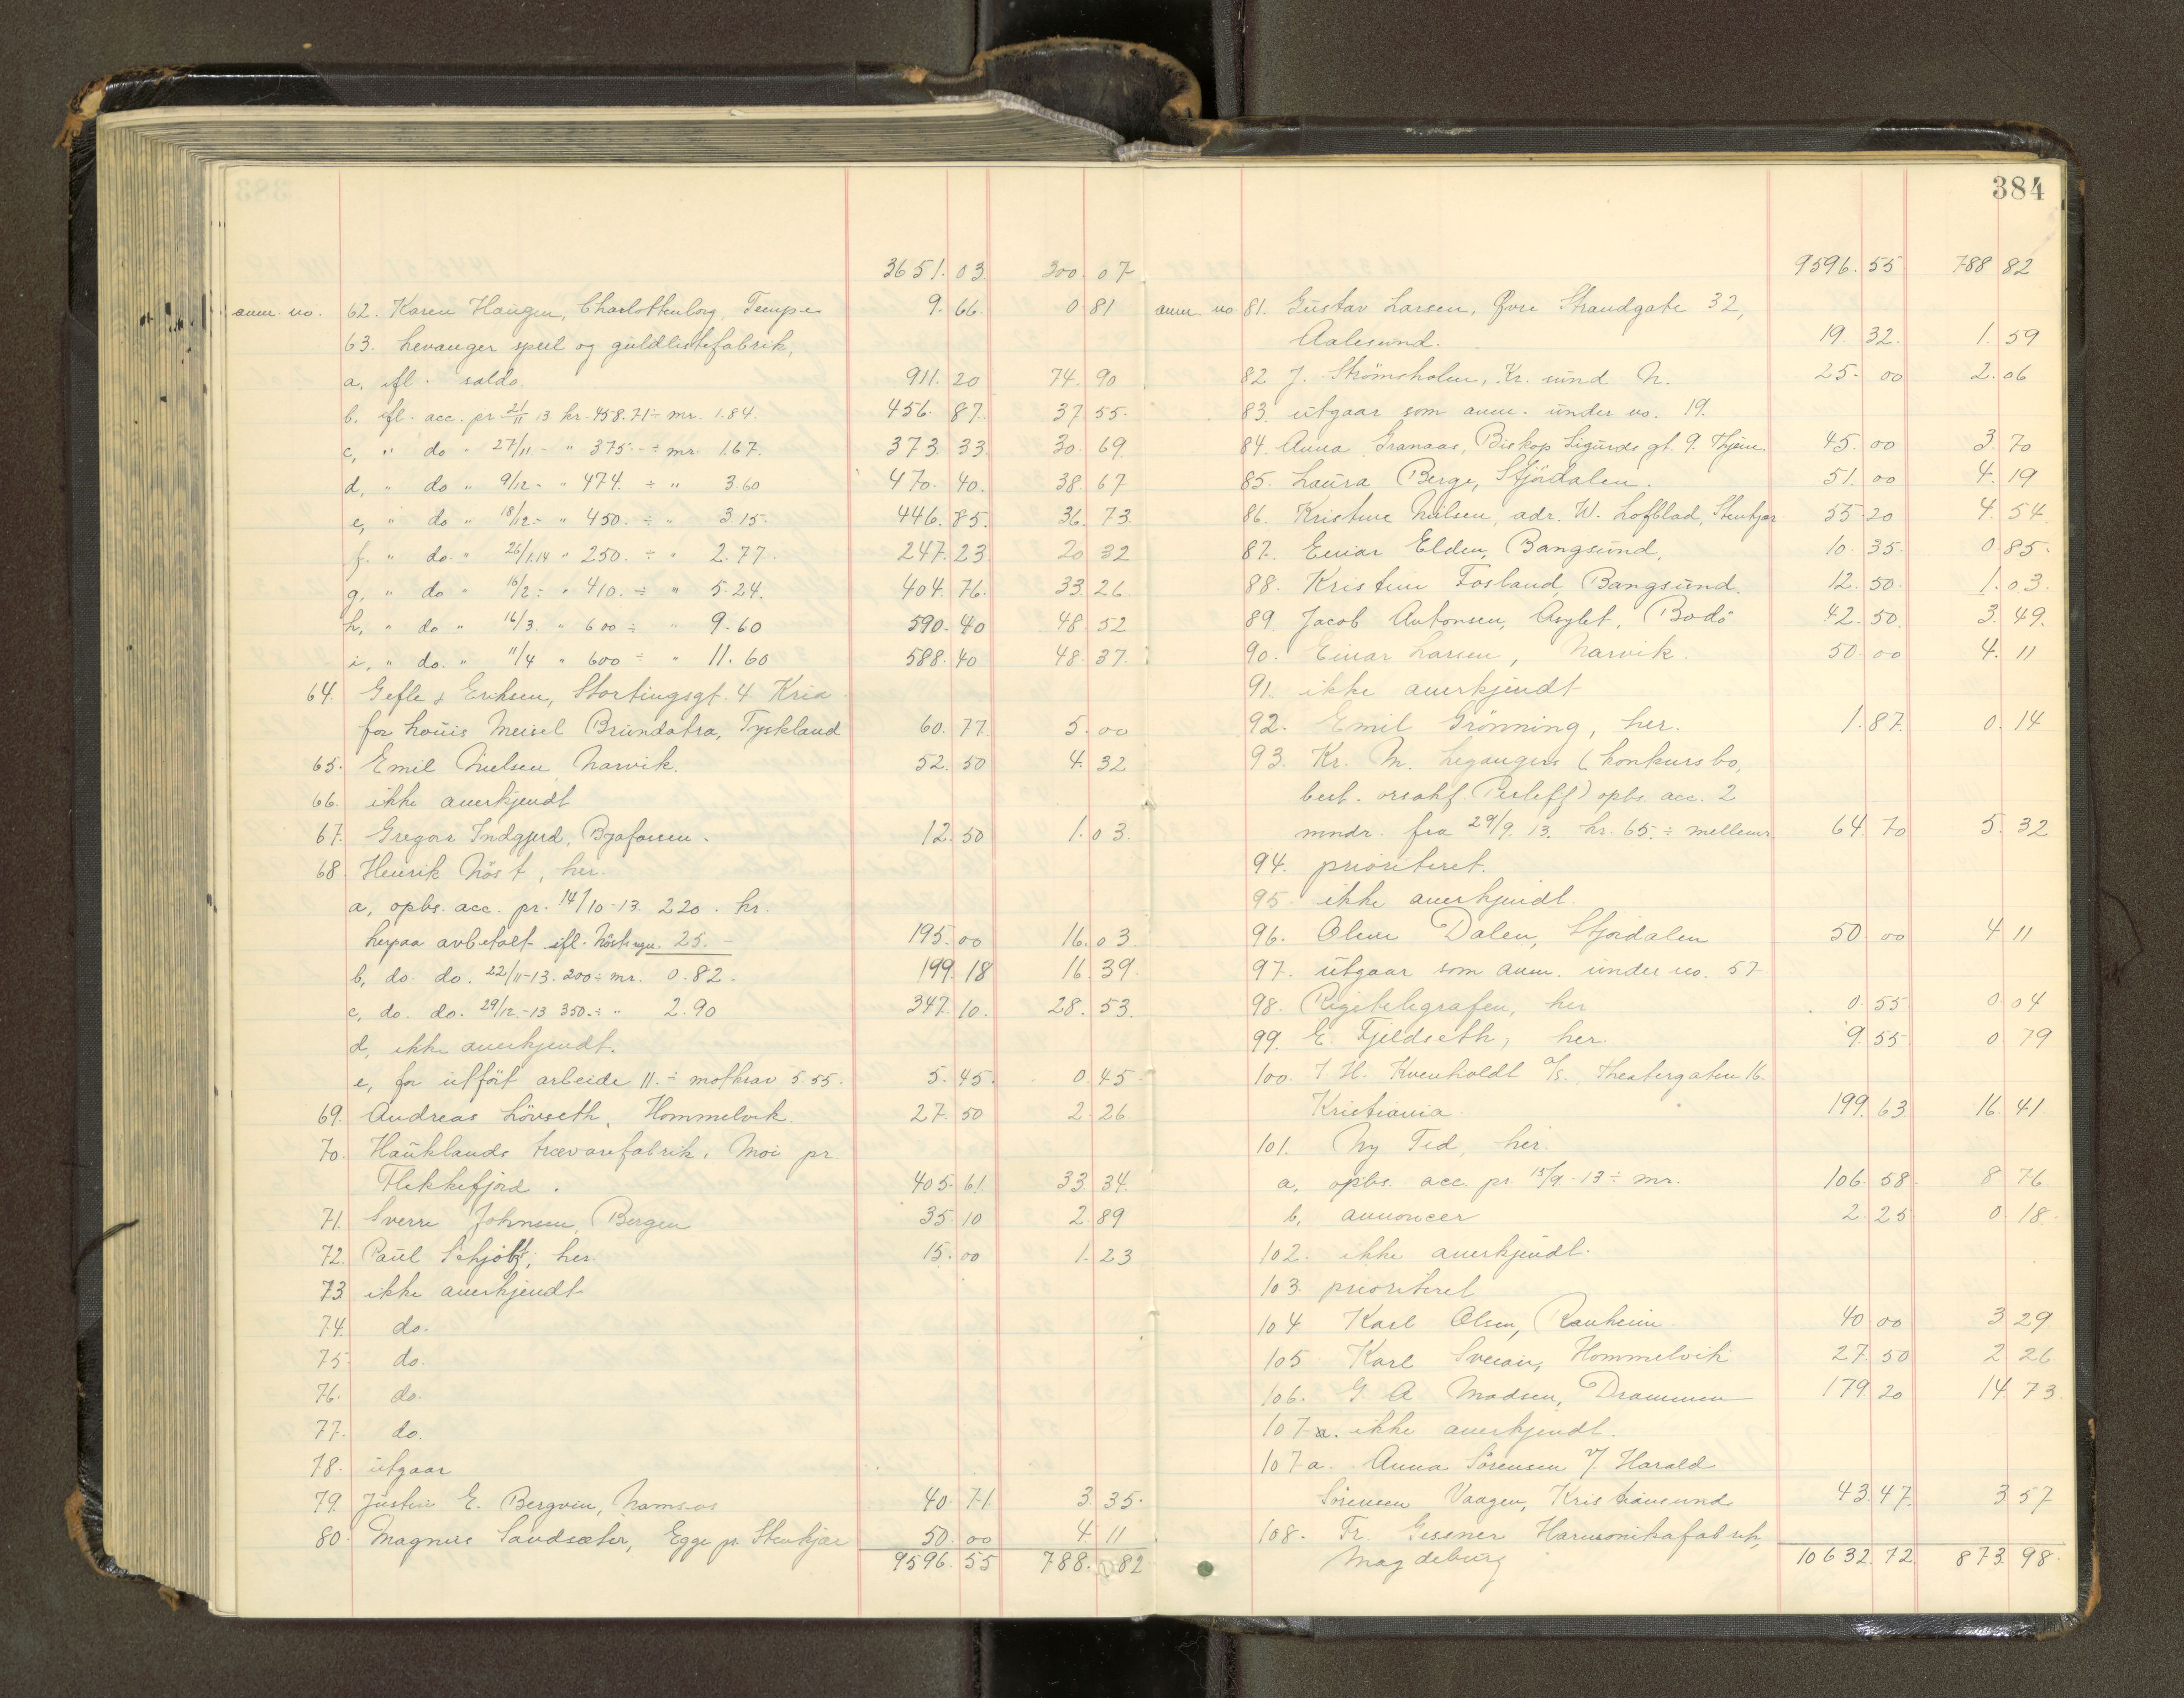 384
3651. 03. 300. 07
anm. no. 62. Karen Haugen, Charlottenborg, Tempe 9. 66. 0 81
63. Levanger speil og guldlistefabrik,
a, ifl. saldo. 911. 20 74. 90
b. ifl. acc. pr 21/11 13 kr. 458.71 ÷ mr. 1.84. 456. 87. 37 55.
c, " do " 27/11 - " 375.- ÷ mr. 1.67. 373 33. 30. 69
d, " do " 9/12 - " 474. ÷ " 3.60 470. 40. 38. 67
e, " do " 18/12 - " 450. ÷ " 3.15. 446. 85. 36. 73
f. " do. " 26/1.14 " 250. ÷ " 2.77. 247. 23 20 32
g, " do " 16/2 - " 410. ÷ " 5.24. 404. 76. 33 26.
h, " do " 16/3. " 600 ÷ " 9.60 590. 40 48 52
i, " do. " 11/4 " 600 ÷ " 11.60 588. 40 48. 37.
64. Gefle & Eriksen, Stortingsgt. 4 Kria
for Louis Meisel Brundobra, Tyskland 60. 77. 5. 00
65. Emil Nielsen Narvik. 52. 50 4. 32
66. ikke anerkjendt
67. Gregor Indgjerd, Byafossen. 12. 50 1. 03.
68 Henrik Nöst, her.
a, opbs. acc. pr. 14/10-13. 220. kr.
herpaa avbetalt ifl. 25. - 195. 00 16. 03
b, do. do. 22/11-13. 200 ÷ mr. 0.82. 199. 18 16 39.
c, do. do. 29/12-13 350. ÷ " 2.90 347. 10. 28. 53.
d, ikke anerkjendt.
e, for utfört arbeide 11. ÷ motkrav 5.55. 5. 45. 0. 45
69. Andreas Lövseth, Hommelvik. 27. 50 2. 26
70. Hauklands trævarefabrik, Moi pr.
Flekkefjord. 405. 61. 33 34.
71. Sverre Johnsen, Bergen 35. 10 2. 89
72. Paul Schjölz, her. 15. 00 1. 23
73 ikke anerkjendt
74. do.
75 do.
76. do.
77. do.
78. utgaar
79. Justin E. Bergvin, Namsos 40. 71. 3 35.
80. Magnus Sandsæter, Egge pr. Stenkjær 50. 00 4 11
9596. 55 788. 82
9596. 55 788 82
anm. no 81. Gustav Larsen, Øvre Strandgate 32,
Aalesund. 19. 32. 1. 59
82 J. Strömsholm, Kr. sund N. 25. 00 2. 06
83. utgaar som anm. under no. 19.
84. Anna Granaas, Biskop Sigurds gt. 9. Thjem. 45. 00 3. 70
85. Laura Berge, Stjördalen. 51. 00 4. 19
86. Kristine Nilsen, adr. W. Lofblad, Stenkjær 55 20 4. 54
87. Einar Elden, Bangsund, 10. 35. 0 85.
88. Kristine Fosland, Bangsund. 12. 50. 1. 03.
89 Jacob Antonsen, Asylet, Bodö 42. 50. 3. 49.
90. Einar Larsen, Narvik. 50. 00 4. 11
91. ikke anerkjendt
92. Emil Grönning, her. 1. 87. 0. 14
93. Kr. M. Legangers (konkursbo,
best. orsakf. Perleff) opbs. acc. 2
mndr. fra 29/9. 13. kr. 65. ÷ mellemr 64. 70 5. 32
94. prioriteret.
95 ikke anerkjendt.
96. Oline Dalen, Stjørdalen 50. 00 4 11
97. utgaar som anm. under no. 57
98. Rigstelegrafen, her 0. 55 0. 04
99. E. Fjeldseth, her. 9. 55 0 79
100. J. H. Kvenholdt A/S. Theatergaten 16.
Kristiania. 199. 63 16. 41
101. Ny Tid, her.
a, opbs. acc. pr 15/9-13 ÷ mr. 106. 58 8 76
b, annoncer 2. 25 0. 18.
102. ikke anerkjendt.
103 prioriteret
104 Karl Olsen, Ranheim 40 00 3 29
105 Karl Sveian, Hommelvik 27. 50 2 26
106. G A Madsen, Drammen 179. 20 14. 73.
107 a. ikke anerkjendt.
107 a. Anna Sörensen v/ Harald
Sörensen Vaagen, Kristiansund 43. 47. 3 57
108. Fr. Gessner Harmonikafabrik,
Magdeburg 10632. 72. 873. 98.